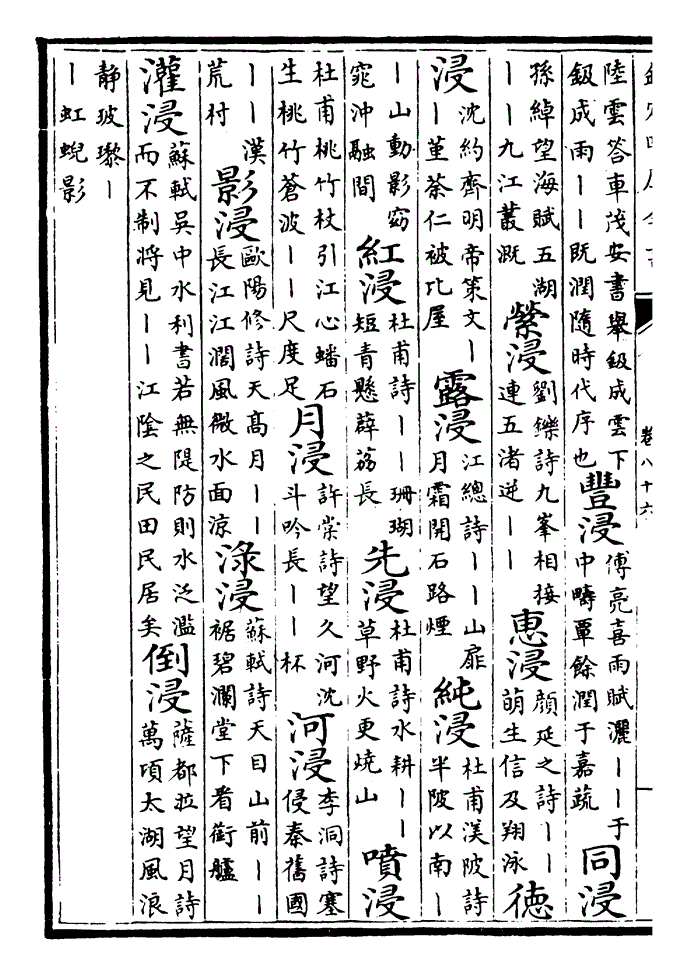 欽定四庫全書
卷八十六
陸雲答車茂安書舉鈒成雲下鈒成雨丨丨既潤隨時代序也 豐浸 傅亮喜雨賦灑丨丨于中疇覃餘潤于嘉蔬 同浸
孫綽望海賦五湖丨丨九江叢溉 縈浸 劉鑠詩九峯相接連五渚逆丨丨 惠浸 顔延之詩丨丨萌生信及翔泳 德
浸 沈約齊明帝策文丨丨堇荼仁被比屋 露浸 江總詩丨丨山扉月霜開石路煙 純浸 杜甫渼陂詩半陂以南丨
丨山動影窈窕沖融間 紅浸 杜甫詩丨丨珊瑚短青懸薜荔長 先浸 杜甫詩水耕丨丨草野火更燒山 噴浸
杜甫桃竹杖引江心蟠石生桃竹蒼波丨丨尺度足 月浸 許棠詩望久河沈斗吟長丨丨杯 河浸 李洞詩塞侵秦舊國
丨丨漢荒村 影浸 歐陽修詩天高月丨丨長江江濶風微水面涼 淥浸 蘇軾詩天目山前丨丨裾碧瀾堂下看銜艫
灌浸 蘇軾吳中水利書若無隄防則水泛濫而不制將見丨丨江陰之民田民居矣 倒浸 薩都拉望月詩萬頃太湖風浪
靜玻瓈丨丨虹蜺影